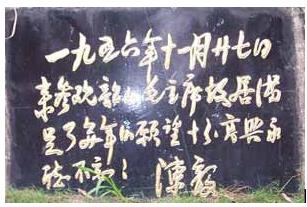 一九五六年十一月廿七日
来参观韶山毛主席故居满
足了多年的愿望十分高兴永
志不忘！陳毅